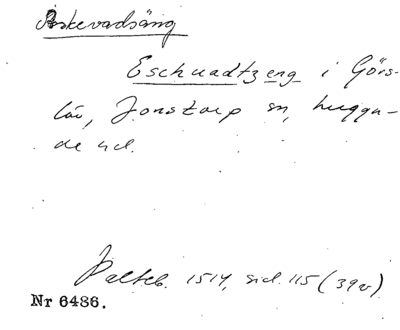 Askevadsäng
Eschuadtzeng i Görs-
löv, Jonstorp sn, luggu-
de hd.
Palteb. 1514, sid. 115 (39v)
Nr 6486.